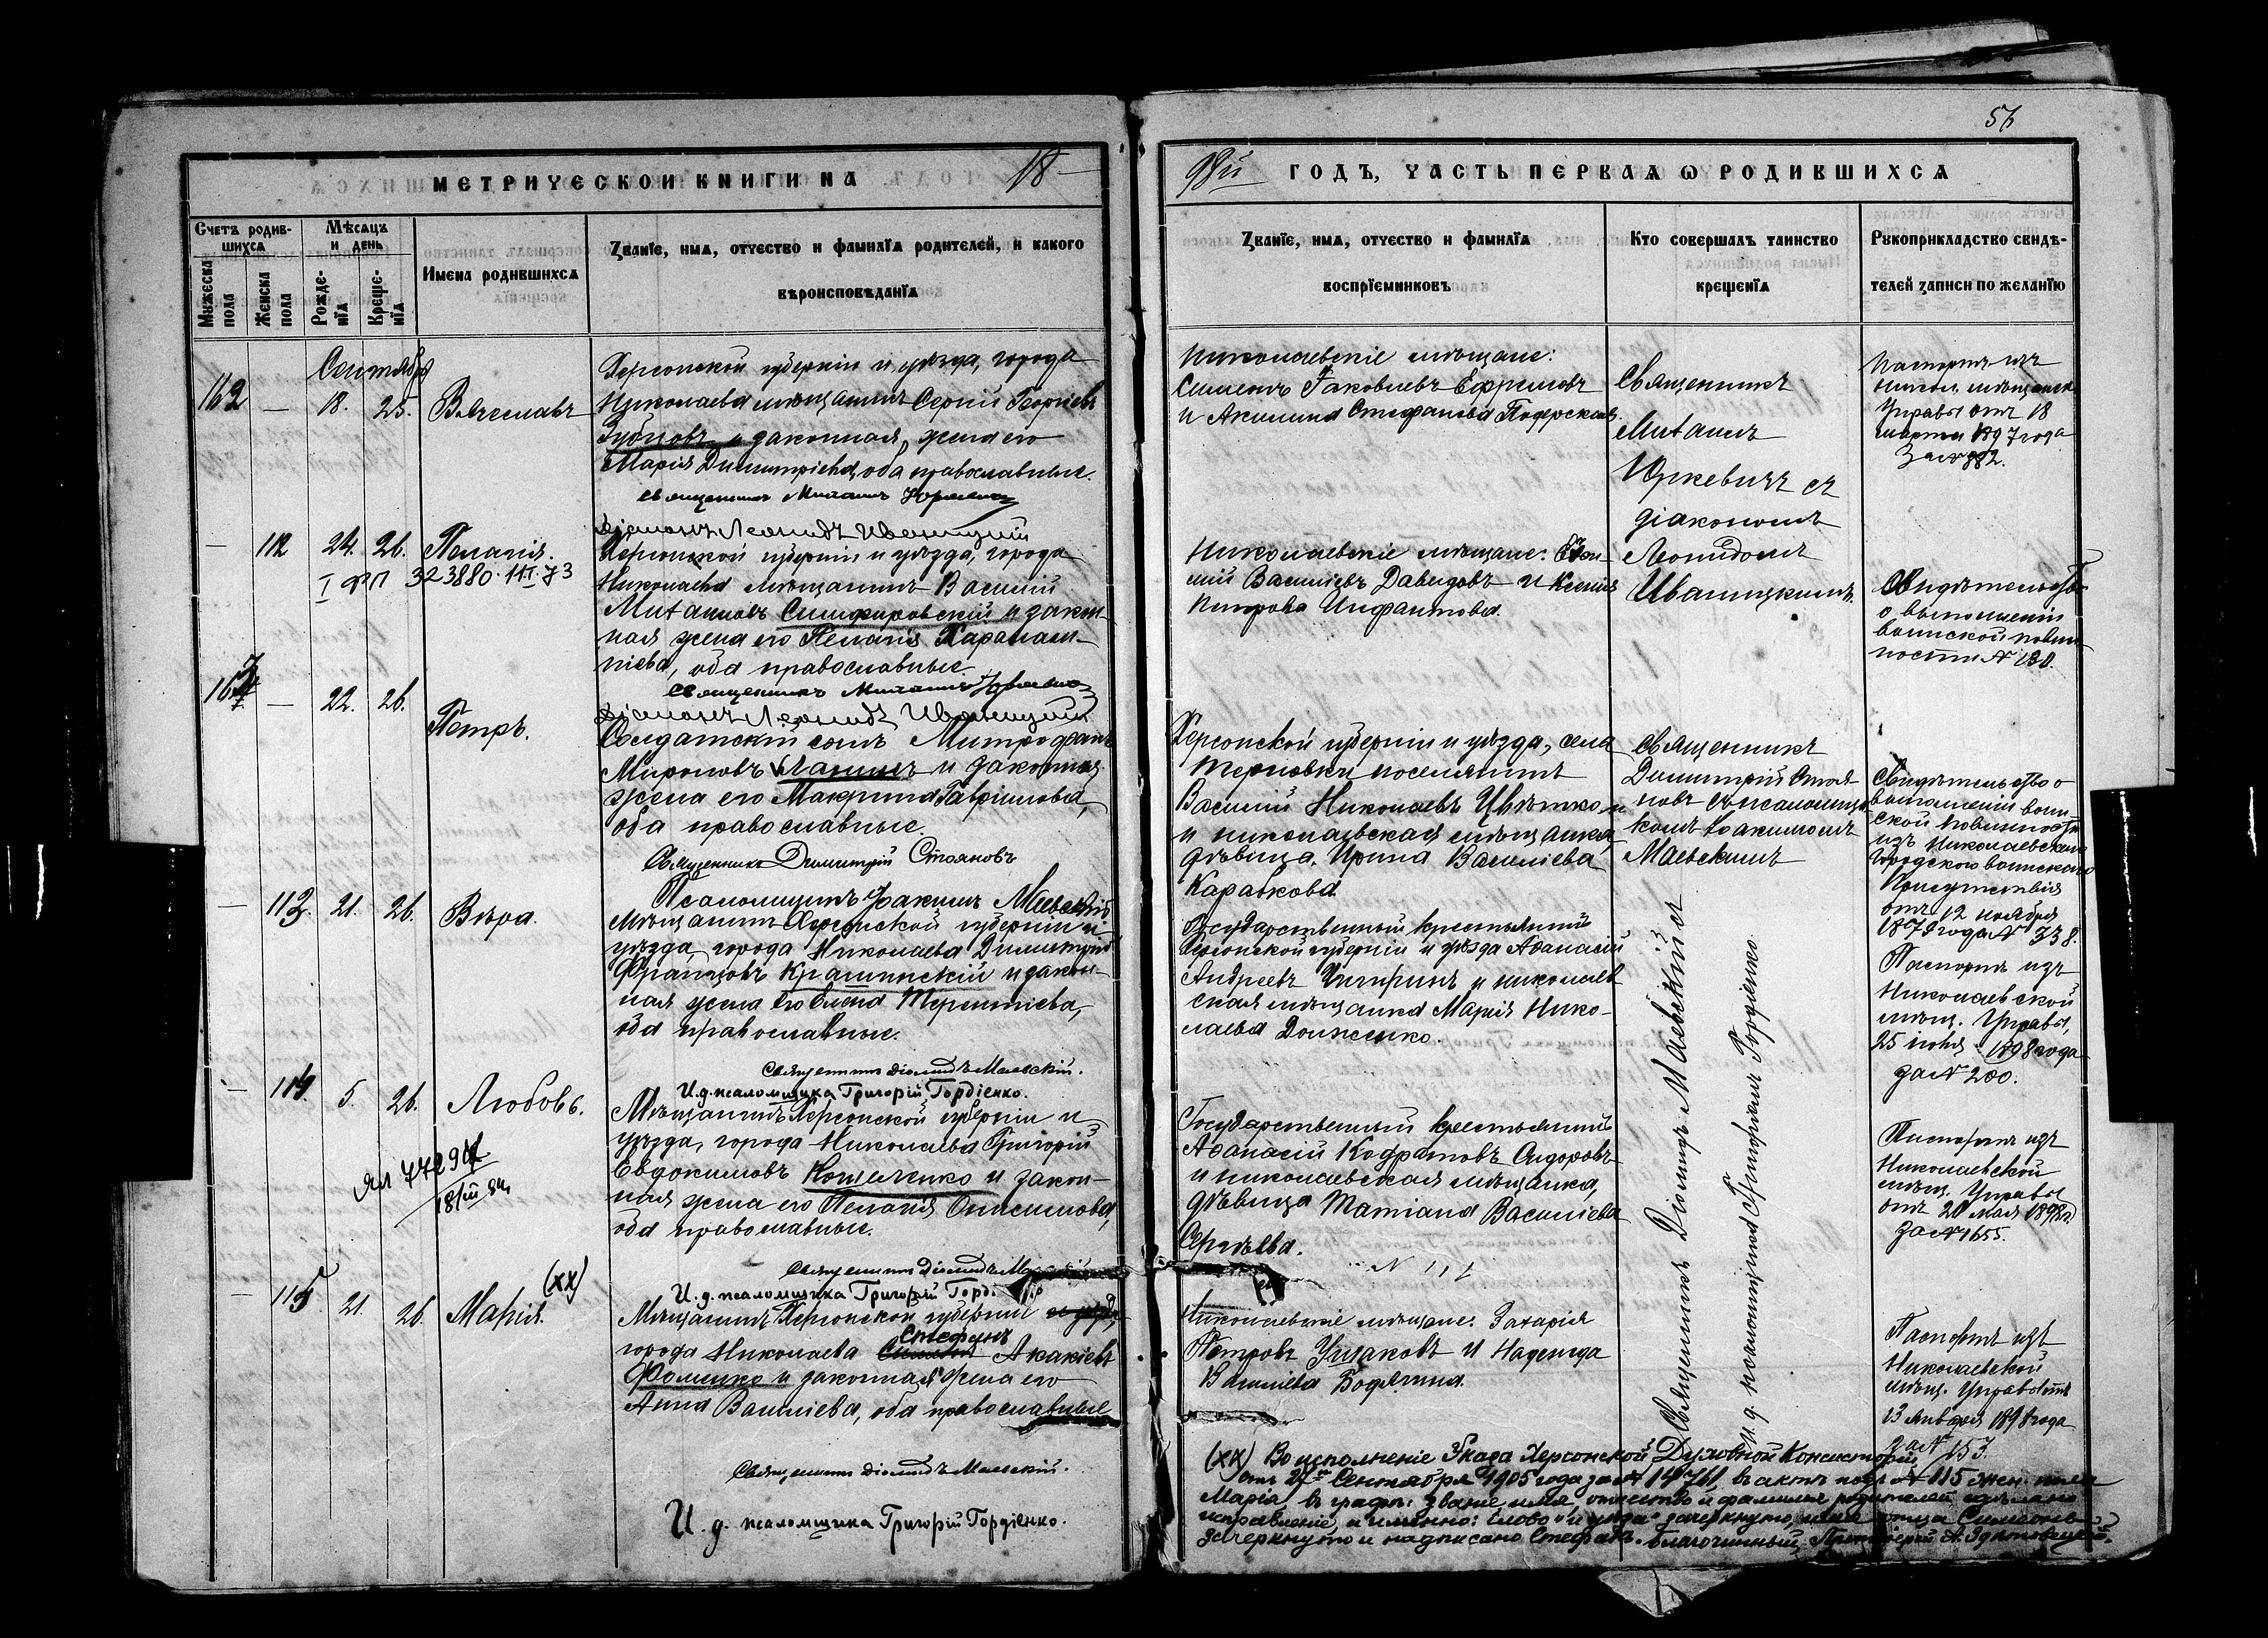 56
МЕТРИЧЕСКОЙ КНИГИ НА 18
98й ГОДЪ, ЧАСТЬ ПЕРВАЯ Ѡ РОДИВШИХСЯ
Счетъ родив-
шихся
Мужеска
пола
Женска
пола
Мѣсяцъ
и день
Рожде-
нїя
Креще-
нїя
Имена родившихся
Званїе, имя, отчество и фамилїя родителей, и какого
вѣроисповѣданїя
Званїе, имя, отчество и фамилїя
воспрїемниковъ
Кто совершалъ таинство
крещенїя
Рукоприкладство свидѣ-
телей записи по желанїю
Сентября
162 — 18. 25. Вячеславъ
Херсонской губерніи и уѣзда, города
Николаева мѣщанинъ Сергій Георгіевъ
Зубковъ и законная жена его
Марія Димитріева, оба православные.
священникъ Михаилъ Юркевичъ
діаконъ Леонидъ Иваницкій
Николаевскіе мѣщане:
Симеонъ Іаковлевъ Ефремовъ
и Акилина Стефанова
Священникъ
Михаилъ
Юркевичъ съ
діакономъ
Леонидомъ
Иваницкимъ.
Паспортъ изъ
Управы отъ 18
марта 1897 года
За № 882.
— 112 24. 26. Пелагія.
I ФП 323880. III. 73
Херсонской губерніи и уѣзда, города
Николаева мѣщанинъ Василій
Михаиловъ Симфировскій и закон-
ная жена его Пелагія Харалам-
піева, оба православные.
священникъ Михаилъ Юркевичъ
діаконъ Леонидъ Иваницкій
Николаевскіе мѣщане:
Василіевъ Давидовъ и Ксенія
Петрова Инфантова.
Свидѣтельство
о выполненіи
воинской повин-
ности № 130.
163 — 22. 26. Петръ.
Солдатскій сынъ Митрофанъ
Мироновъ Лагинъ и законная
жена его Макрина Гавріилова,
оба православные.
Священникъ Димитрій Стояновъ
Псаломщикъ Іоакимъ Маевскій
Херсонской губерніи и уѣзда, села
Терновки поселянинъ
Василій Николаевъ Цвѣтко
и николаевская мѣщанка
дѣвица Ирина Василіева
Карабкова.
Священникъ
Димитрій Стоя-
новъ съ псаломщи-
комъ Іоакимомъ
Маевскимъ
Свидѣтельство о
выполненіи воин-
ской повинности
изъ Николаевскаго
Городского воинскаго
Присутствія
отъ 12 ноября
1878 года № 338.
— 113. 21. 26. Вѣра.
Мѣщанинъ Херсонской губерніи и
уѣзда, города Николаева Димитрій
Францовъ Крашинскій и закон-
ная жена его Елена Терентіева,
оба православные.
Священникъ Діомидъ Маевскій.
И. д. псаломщика Григорій Гордіенко.
Государственный крестьянинъ
Херсонской губерніи и уѣзда Аѳанасій
Андреевъ Чигиринъ и николаев-
ская мѣщанка Марія Нико-
лаева Долженко.
Священникъ Діомидъ Маевскій съ
и. д. псаломщика Григоріемъ Гордіенко
Паспортъ изъ
Николаевской
мѣщ. Управы,
25 іюня 1898 года
за № 200.
— 114. 5. 26. Любовь.
18/III 84
Мѣщанинъ Херсонской губерніи и
уѣзда, города Николаева Григорій
Евдокимовъ Кошеленко и закон-
ная жена его Пелагія Онисимова,
оба православные.
Священникъ Діомидъ
И. д. псаломщика Григорій
Государственный крестьянинъ
Аѳанасій Кодратовъ Сидоровъ
и николаевская мѣщанка,
дѣвица Татіана Василіева
Сергѣева.
Паспортъ изъ
Николаевской
мѣщ. Управы
отъ 20 мая 1898
за № 1655.
— 115. 21. 26. Марія. (хх)
Мѣщанинъ Херсонской губерніи и уѣзда,
Стефанъ
города Николаева Симеонъ Акакіевъ
Фоменко и законная жена его
Анна Василіева, оба православные
Священникъ Діомидъ Маевскій.
И. д. псаломщика Григорій Гордіенко.
Николаевскіе мѣщане: Захарія
Петровъ Ушаковъ и Надежда
Василіева Бодягина.
Паспортъ изъ
Николаевской
мѣщ. Управы отъ
13 января 1898 года
за № 153.
(хх) Во исполненіе Указа Херсонской Духовной Консисторіи
отъ 27го Сентября 1905 года за № 14761, въ актѣ подъ № 115 жен. пола
Марія, въ графѣ: званіе, имя, отчество и фамилія родителей сдѣлано
исправленіе, а именно: слово "и уѣзда" зачеркнуто, имя отца Симеонъ
зачеркнуто и надписано Стефанъ. Благочинный, Протоіерей